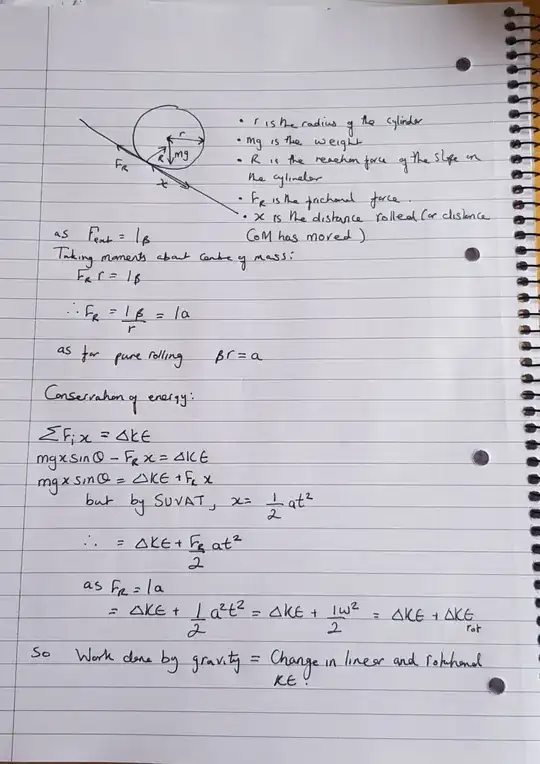 r
R
mg
FR
x
• r is the radius of the cylinder
• mg is the weight
• R is the reaction force of the slope on
the cylinder
• FR is the frictional force.
• x is the distance rolled (or distance
CoM has moved)
as Γext = Iβ
Taking moments about centre of mass:
FR r = Iβ
∴ FR = Iβ/r = Ia
as for pure rolling βr = a
Conservation of energy:
ΣFi x = ΔKE
mgx sinθ - FR x = ΔKE
mgx sinθ = ΔKE + FR x
but by SUVAT, x = 1/2 at²
∴ = ΔKE + FR/2 at²
as FR = Ia
= ΔKE + I/2 a²t² = ΔKE + Iω²/2 = ΔKE + ΔKE rot
So Work done by gravity = Change in linear and rotational
KE.